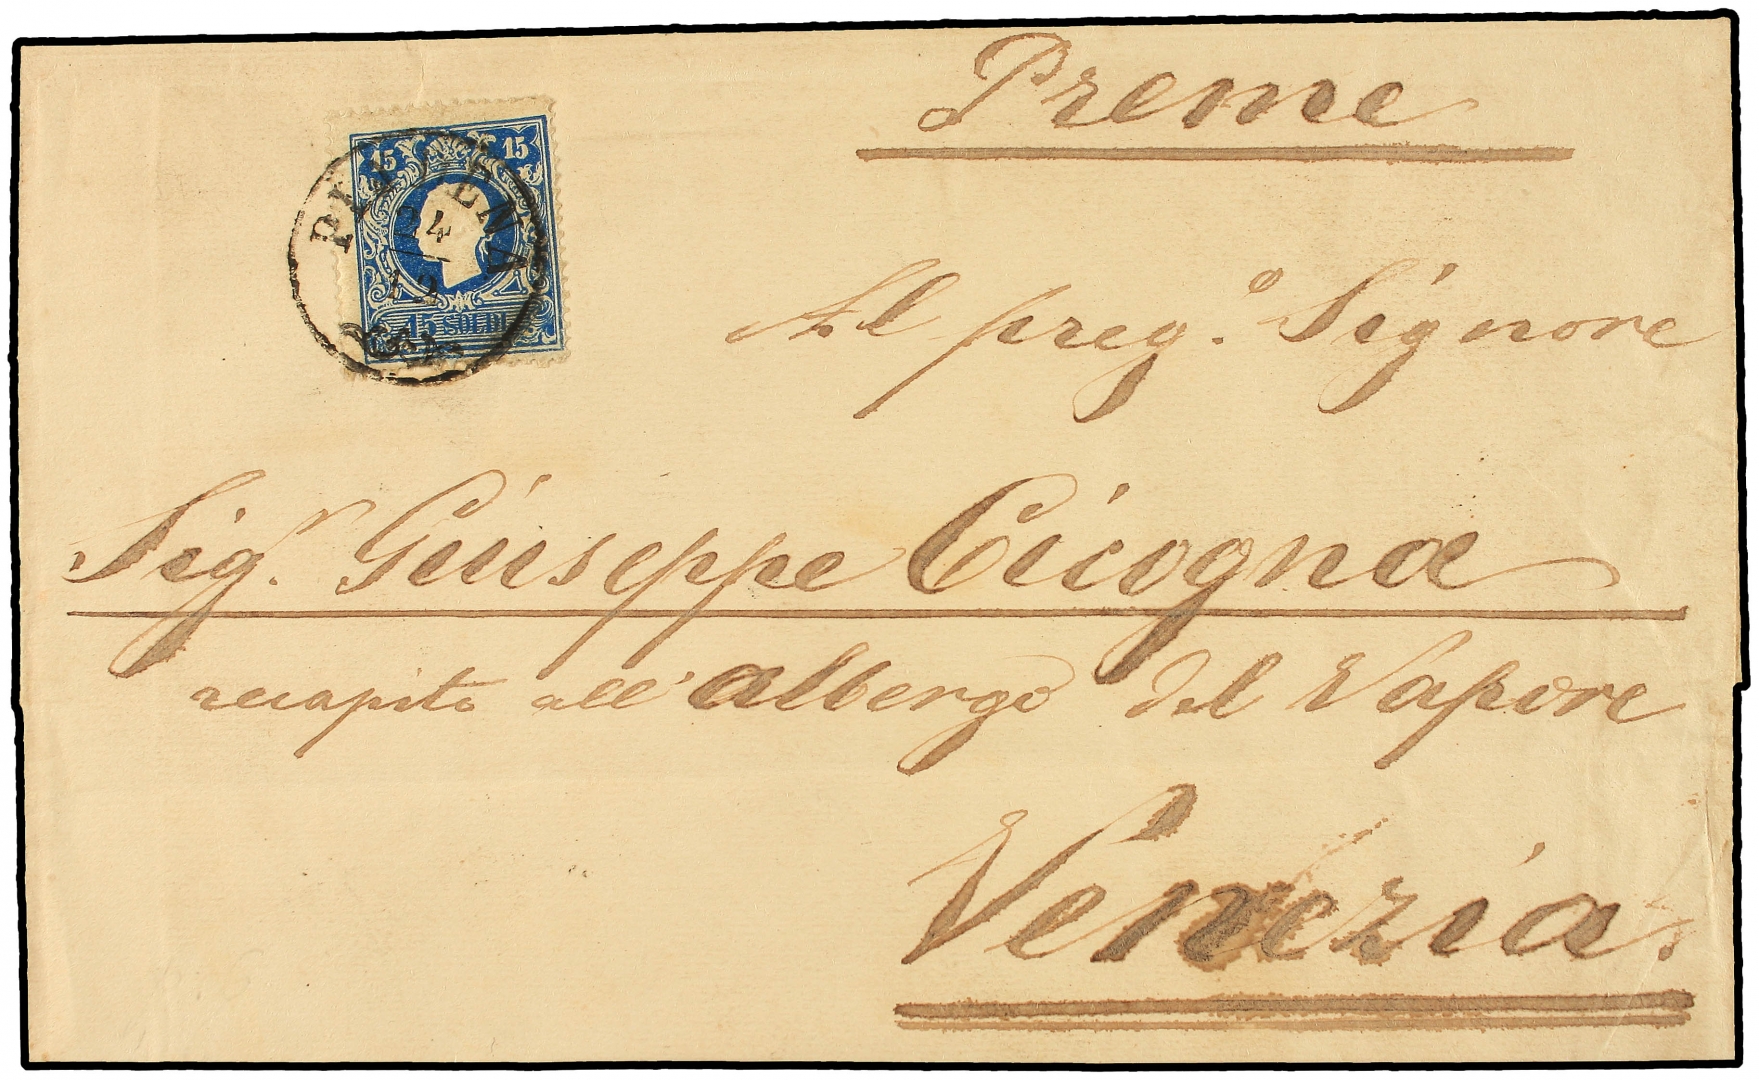 Preme
15 15
24
12
15 SOLDI
Al preg.º Signore
Sig.r Giuseppe Cicogna
recapito all'albergo del Vapore
Venezia.